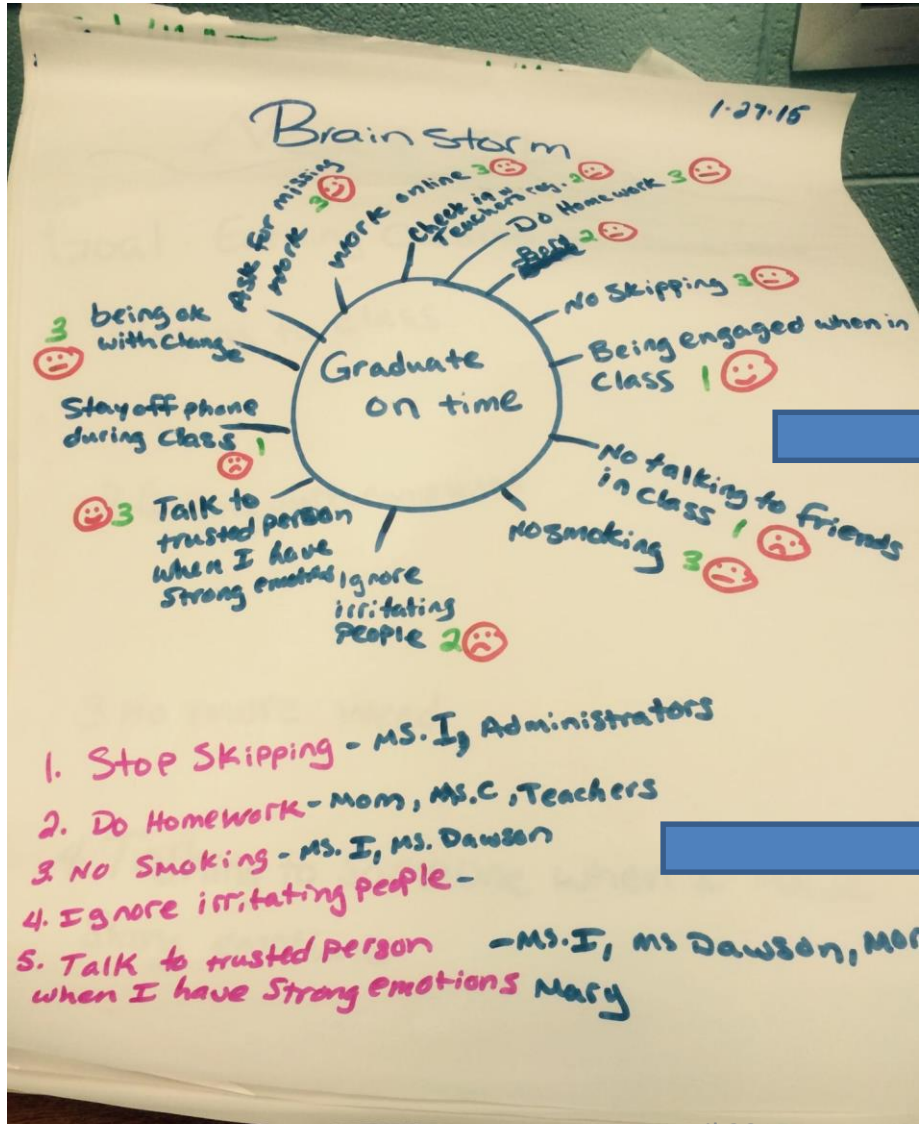 1-27-15
Brain Storm
Ask for missing
work 3
work online 3
check in w
Teachers reg. 2
Do Homework 3
2
No Skipping 3
Being engaged when in
class 1
No talking to friends
in class 1
No smoking 3
Ignore
irritating
people 2
3 Talk to
trusted person
when I have
strong emotions
Stay off phone
during class 1
3 being ok
with change
Graduate
on time
1. Stop Skipping - Ms. I, Administrators
2. Do Homework - Mom, Ms. C, Teachers
3. No Smoking - Ms. I, Ms. Dawson
4. Ignore irritating people -
5. Talk to trusted person - Ms. I, Ms Dawson,
when I have Strong emotions Mary